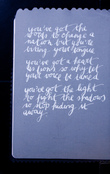 you've got the
words to change a
nation but you're
biting your tongue
you've got a heart
so tious so why let
your voice be tamed
you've got the light
to fight the shadows
so stop hiding it
away.